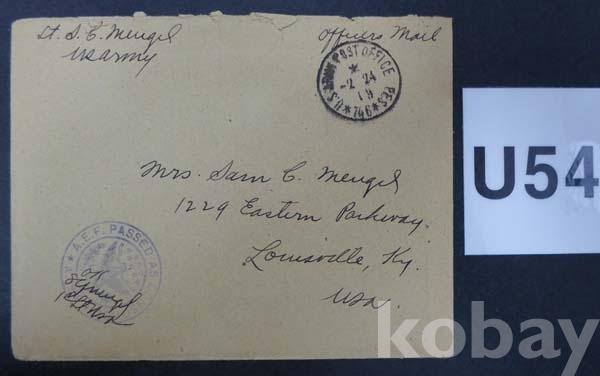 Lt. S. C. Mengel
US Army
Officers Mail
U.S. ARMY POST OFFICE
-2 24
19
★ 746 ★
Mrs. Sam C. Mengel
1229 Eastern Parkway.
Louisville, Ky.
USA.
A.E.F. PASSED AS
OK
SCMengel
1st Lt USA
U54
kobay